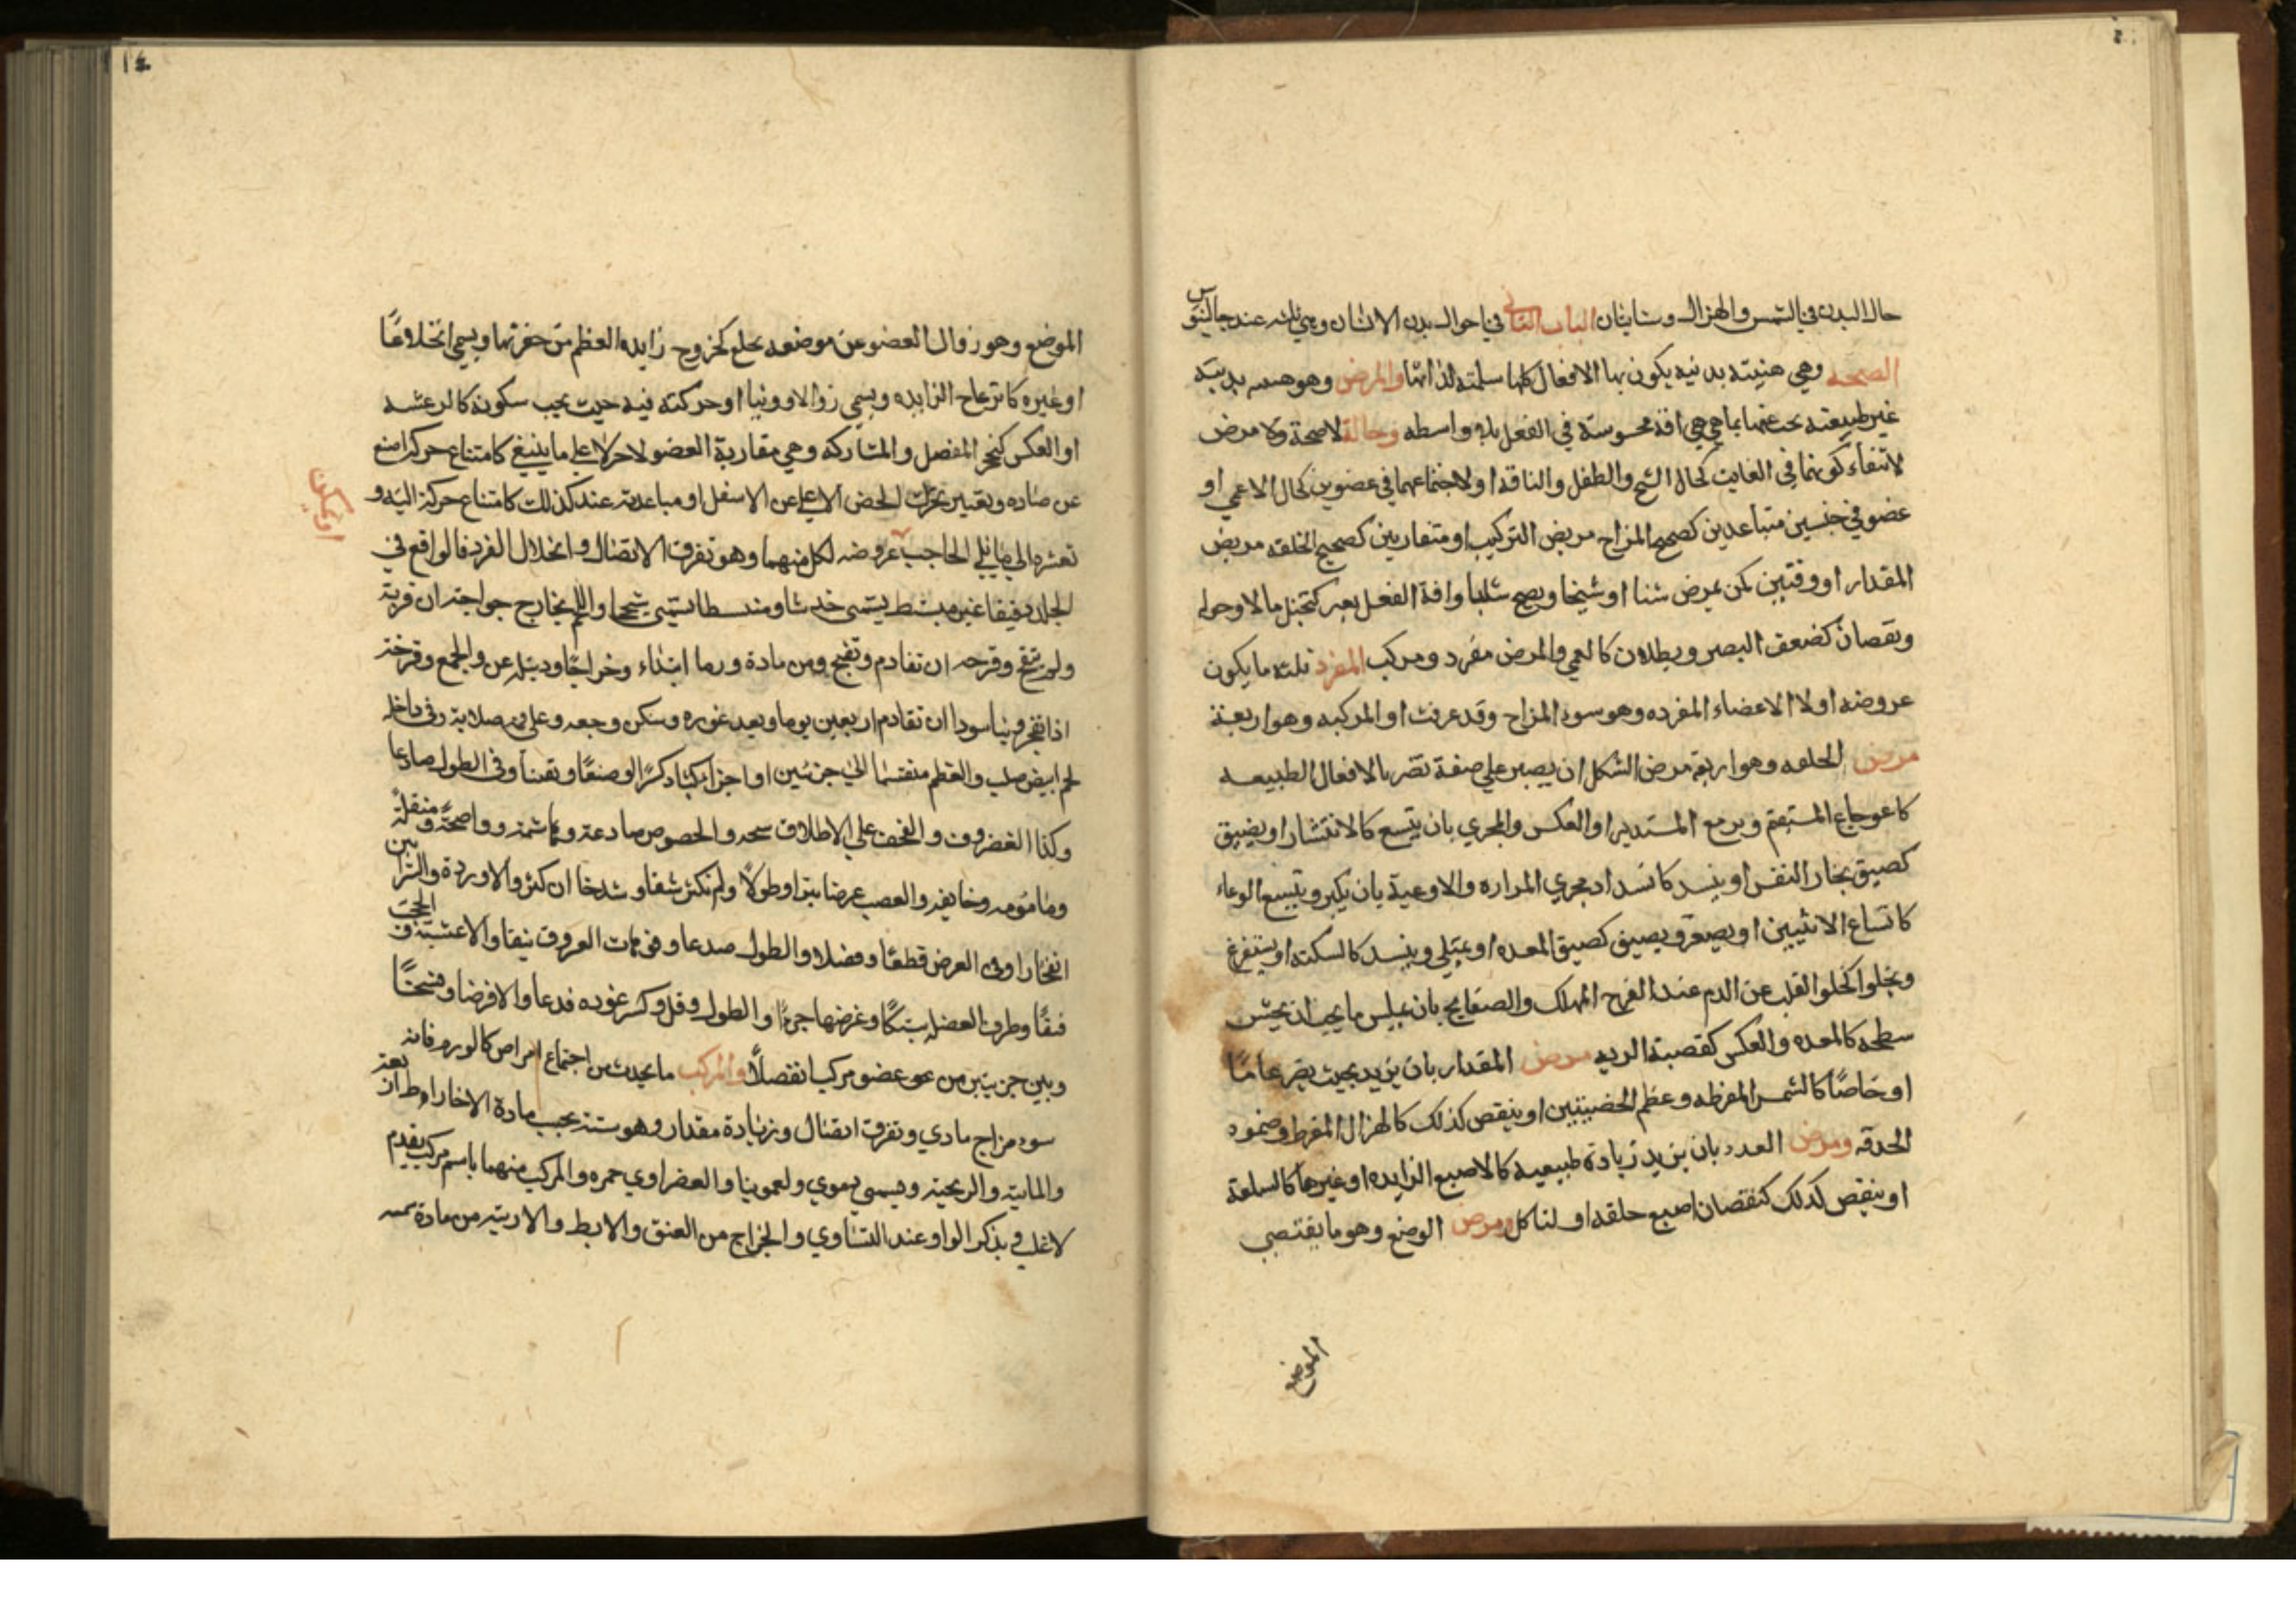 حال البدن في السمن والهزال وستاتيان الباب الثاني في احوال بدن الانسان وهي ثلثه عند جالينوس
الصحة وهي هيئته بدنيه يكون بها الافعال كلها سليمة لذاتها والمرض وهو هييه بدنيه
غير طبيعته يجب عنها بما هي هي افة محسوسة في الفعل بلا واسطه وحالة لا صحة ولا مرض
لانتفاء كونهما في الغايت كحال الشيخ والطفل والناقه او لاجتماعهما في عضوين كحال الاعمي او
عضو في جنسين متباعدين كصحيح المزاج مريض التركيب او متقاربين كصحيح الخلقه مريض
المقدار او وقتين كمن يمرض شتا او شيخا ويصح شابا وافة الفعل تغير كتخيل ما لا وجود له
ونقصان كضعف البصر وبطلان كالعمي والمرض مفرد ومركب المفرد ثلثه ما يكون
عروضه اولا الاعضاء المفرده وهو سوء المزاج وقد عرفت او المركبه وهو اربعة
مرض الخلقه وهو اربعة مرض الشكل ان يصير علي صفة تضر بالافعال الطبيعيه
كاعوجاج المستقيم وتربيع المستدير او العكس والمجري بان يتسع كالانتشار او يضيق
كضيق مجار النفس او ينسد كانسداد مجري المراره والاوعية بان يكبر ويتسع الوعاء
كاتساع الانثيين او يصغر ويضيق كضيق المعده او يمتلي وينسد كالسكته او يستفرغ
ويخلوا كخلوا القلب عن الدم عند الفرح المهلك والصفايح بان يملس ما يجب ان يخشن
سطحه كالمعده والعكس كقصبة الريه مرض المقدار بان يزيد بحيث يضر عامًا
او خاصًا كالسمن المفرطه وعظم الخصيتين او ينقص كذلك كالهزال المفرط وضمور
الحدقه ومرض العدد بان يزيد زيادة طبيعيه كالاصبع الزايده او غيرها كالسلعة
او ينقص كذلك كنقصان اصبع خلقه او لتاكل ومرض الوضع وهو ما يقتضي
الموضع
١٤
الموضع وهو زوال العضو عن موضعه بخلع كخروج زايده العظم من حفرتها ويسمي انخلاعًا
او غيره كانزعاج الزايده ويسمي زوالا ووثيا او حركته فيه حيث يجب سكونه كالرعشه
او العكس كتحجر المفصل والمشاركه وهي مقاربة العضو لاخر لا علي ما ينبغي كامتناع حركة اصبع
عن الاسفل او مباعدته عند كذلك كامتناع حركته اليه و
تعسره الي ما يلي الحاجب عروضه لكل منهما وهو تفرق الاتصال وانحلال الفرد فالواقع في
الجلد دقيقا غير منبسط يسمي خدشا ومنبسطا يسمي سحجا واللحم يخارج جراحته ان قربة
ولم تتقيح وقرحه ان تقادم وتقيح ومن مادة ورما ابتداء وخراجًا ودبيله عن الجمع وقرحة
اذا تفجر وناسورا ان تقادم اربعين يوما وبعد غوره وسكن وجعه وعلي فمه صلابة وفي داخله
لحم ابيض صلب والعظم منقسما الي جزئين او اجزا كبارا كسرًا وصغارًا وتفتتا وفي الطول صادعا
وكذا الغضروف والقحف علي الاطلاق شجه والخصوص صادعة وهاشمة وواضحة ومنقلة
ومامومه وجايفه والعصب عرضا بترا وطولًا ولم تكثر شقا وشدخا ان كثر والاوردة والشرايين
انفجارا وفي العرض قطعًا وفصلا والطول صدعا وفي فوهات العروق بثقا والاغشية والحجب
فتقًا وطرف العضل هتكًا وعرضها جزءًا والطول وقل وكثر غوره فدعا والا فرضا وفسخًا
وبين جزيئين من عضو مركب انفصالًا والمركب ما يحدث من اجتماع امراض كالورم فانه
سوء مزاج مادي وتفرق اتصال وزيادة مقدار وهو ستة بحسب مادة الاخلاط الاربعة
والمايته والريحية ويسمي دموي فلغمونيا والصفراوي حمره والمركب منهما باسم مركب بتقديم
الاغلب في بذكر الواو عند التساوي والخراج من العنق والابط والاربيه من مادة سميه